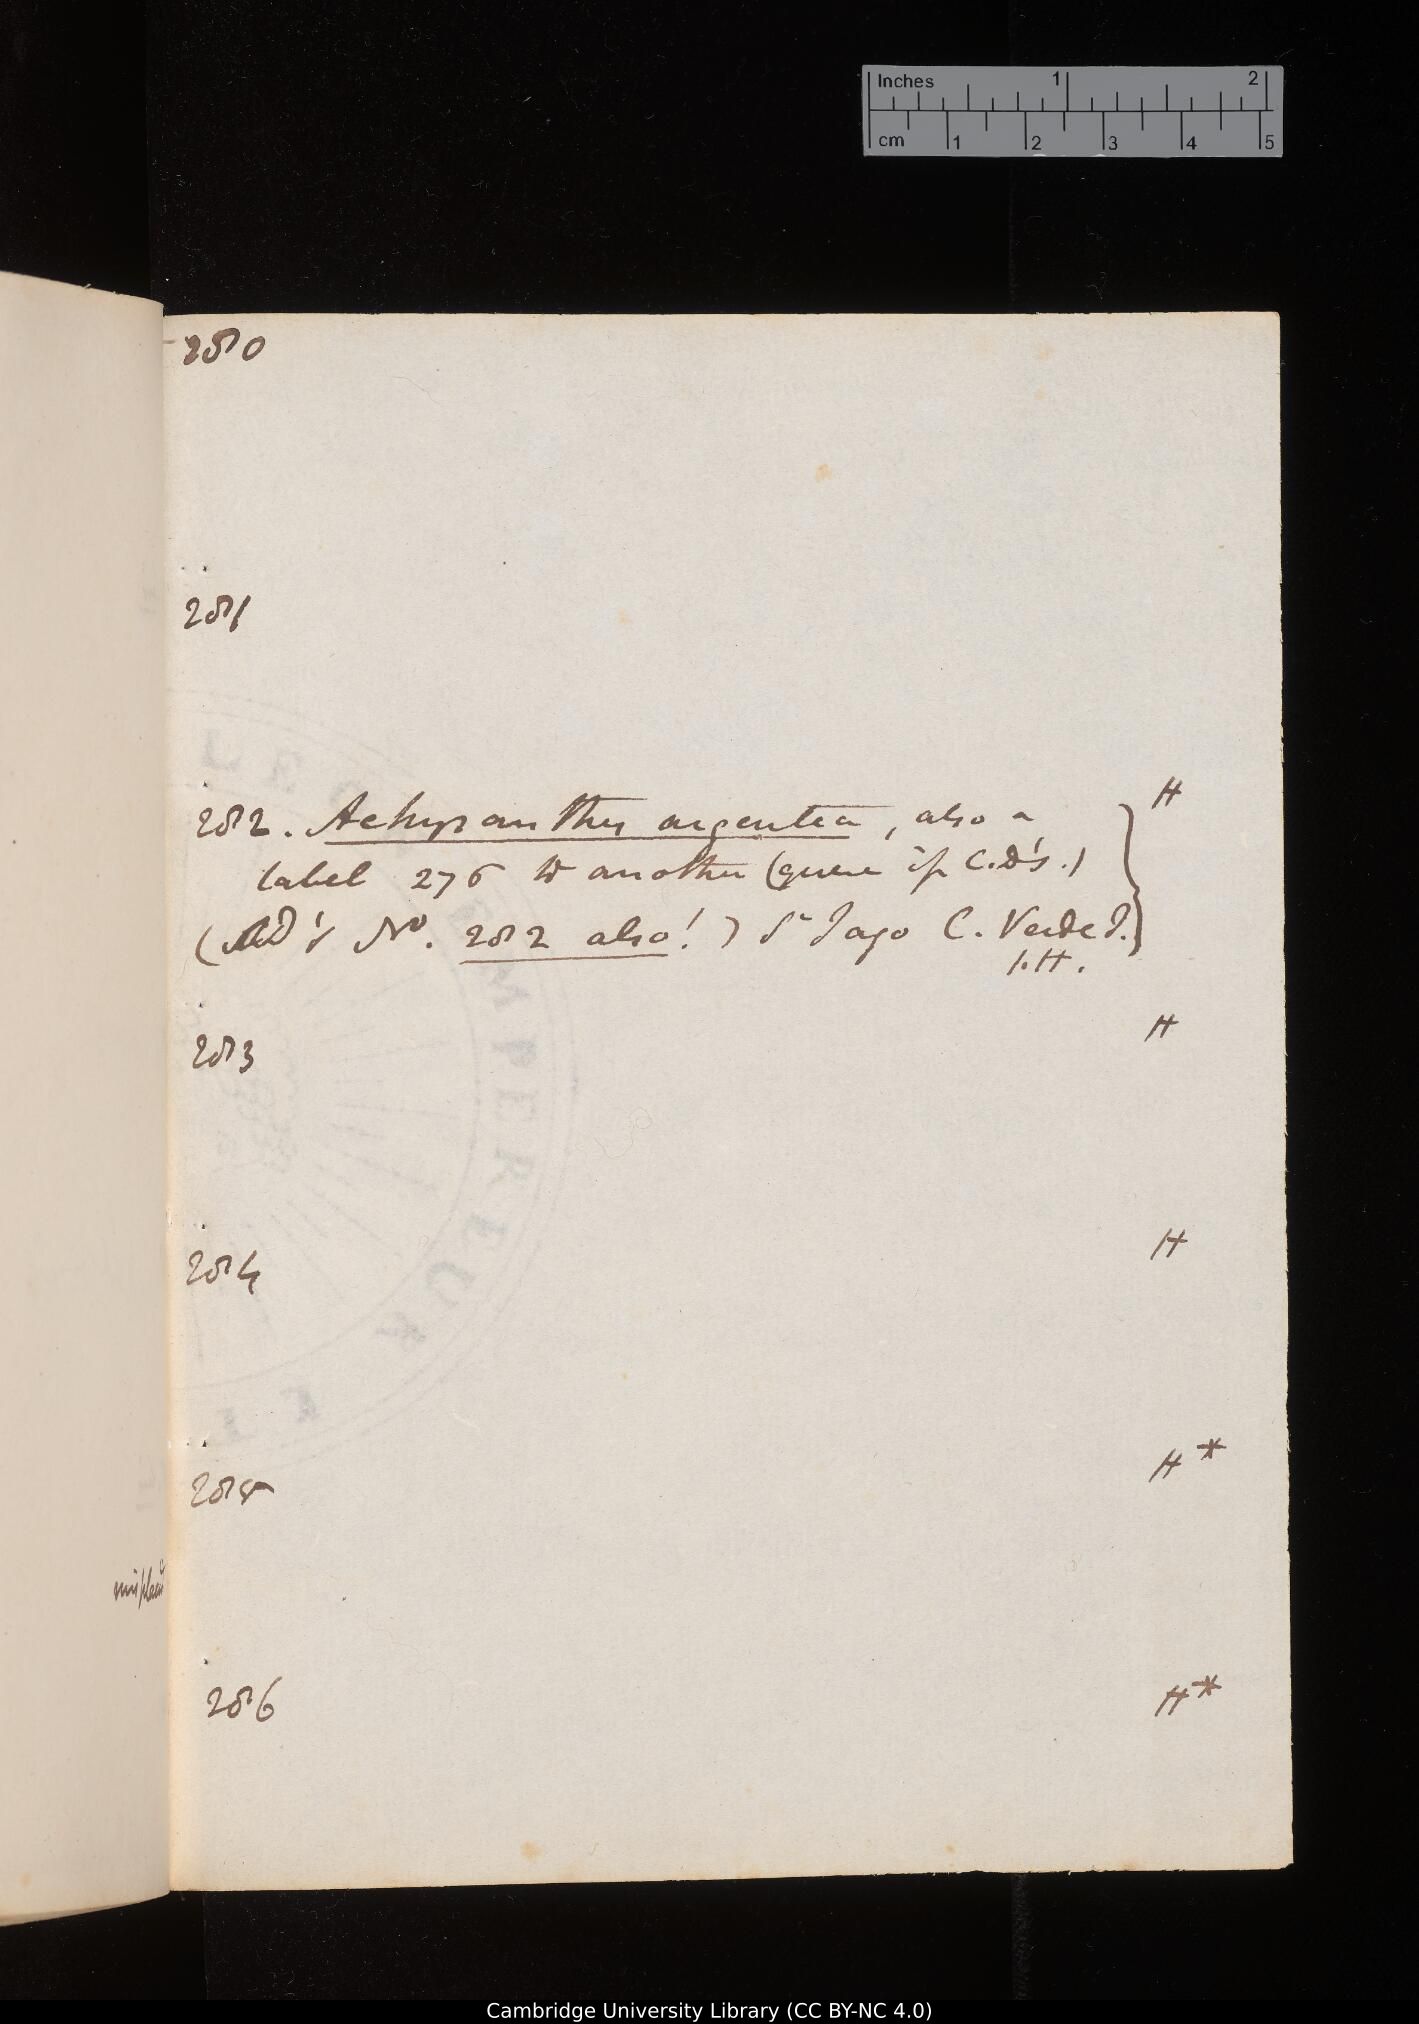 Inches 1 2
cm 1 2 3 4 5
280
281
282. Achyranthes argentea, also a H
label 276 to another (quere if C.D's.)
(CD's No. 282 also!) St Jago C. Verde I.
1.H.
283 H
284 H
285 H*
misplaced
286 H*
Cambridge University Library (CC BY-NC 4.0)